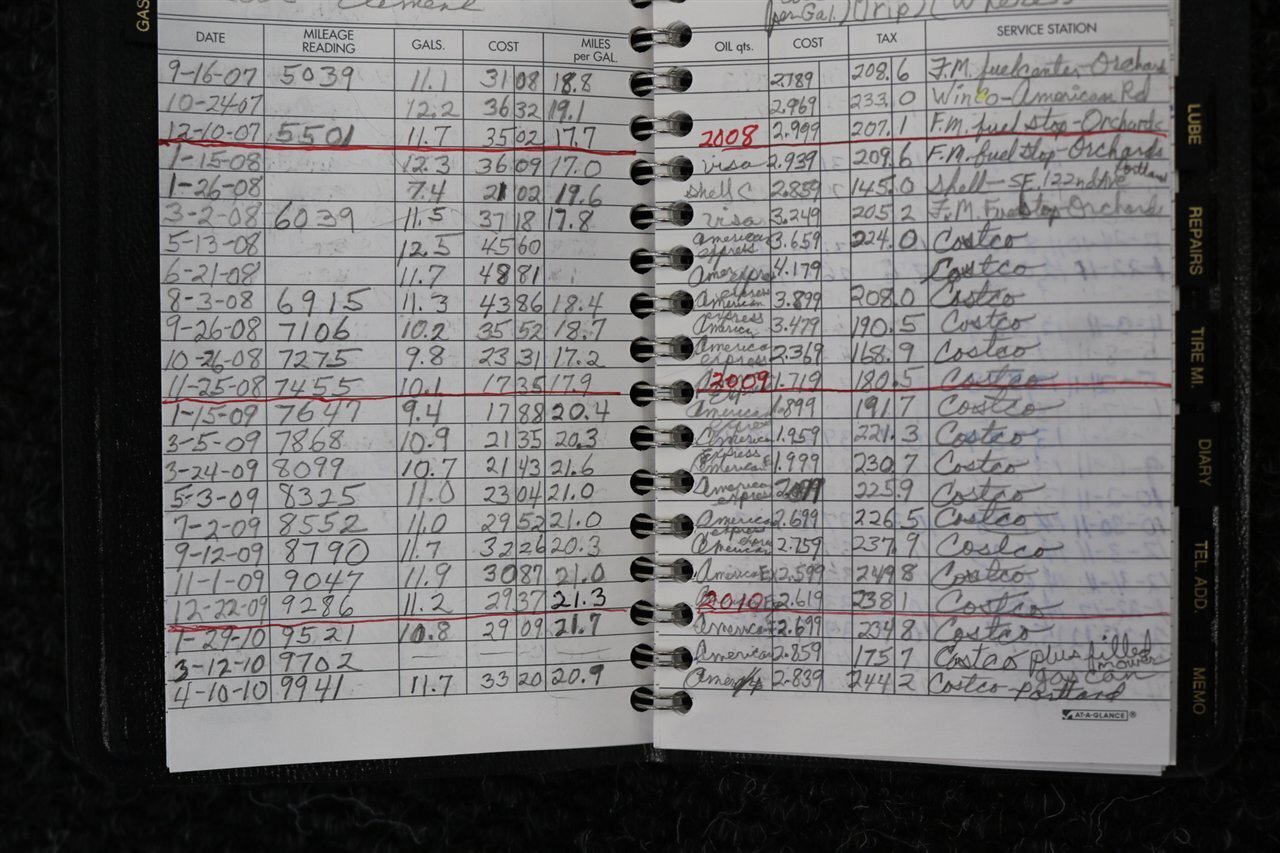 GAS
Clement
per Gal.) (Trip) (
DATE MILEAGE READING GALS. COST MILES per GAL. OIL qts. COST TAX SERVICE STATION
9-16-07 5039 11.1 31 08 18.8 2.789 208.6 F.M. fuel center Orchards
10-24-07 12.2 36 32 19.1 2.969 233.0 Winco-American Rd
12-10-07 5501 11.7 35 02 17.7 2008 2.999 207.1 F.M. fuel stop-Orchards
1-15-08 12.3 36 09 17.0 visa 2.939 209.6 F.M. fuel stop-Orchards
1-26-08 7.4 21 02 19.6 shell C 2.859 145.0 Shell-SE. 122nd Ave Portland
3-2-08 6039 11.5 37 18 17.8 visa 3.249 205.2 F.M. Fuel stop Orchards
5-13-08 12.5 45 60 American express 3.659 224.0 Costco
6-21-08 11.7 48 81 4.179 Costco
8-3-08 6915 11.3 43 86 18.4 American express 3.899 208.0 Costco
9-26-08 7106 10.2 35 52 18.7 America 3.479 190.5 Costco
10-26-08 7275 9.8 23 31 17.2 American express 2.369 168.9 Costco
11-25-08 7455 10.1 17 35 17.9 2009 1.719 180.5 Costco
1-15-09 7647 9.4 17 88 20.4 American 1.899 191.7 Costco
3-5-09 7868 10.9 21 35 20.3 America Express 1.959 221.3 Costco
3-24-09 8099 10.7 21 43 21.6 American 1.999 230.7 Costco
5-3-09 8325 11.0 23 04 21.0 America express 225.9 Costco
7-2-09 8552 11.0 29 52 21.0 America express 2.699 226.5 Costco
9-12-09 8790 11.7 32 26 20.3 American 2.759 237.9 Costco
11-1-09 9047 11.9 30 87 21.0 America Ex 2.599 249 8 Costco
12-22-09 9286 11.2 29 37 21.3 2010 2.619 238 1 Costco
1-29-10 9521 10.8 29 09 21.7 America 2.699 234 8 Costco
3-12-10 9702 — — — American 2.859 175 7 Costco plus filled mower gas can
4-10-10 9941 11.7 33 20 20.9 2.839 244 2 Costco-Portland
AT-A-GLANCE®
LUBE
REPAIRS
TIRE MI.
DIARY
TEL. ADD.
MEMO